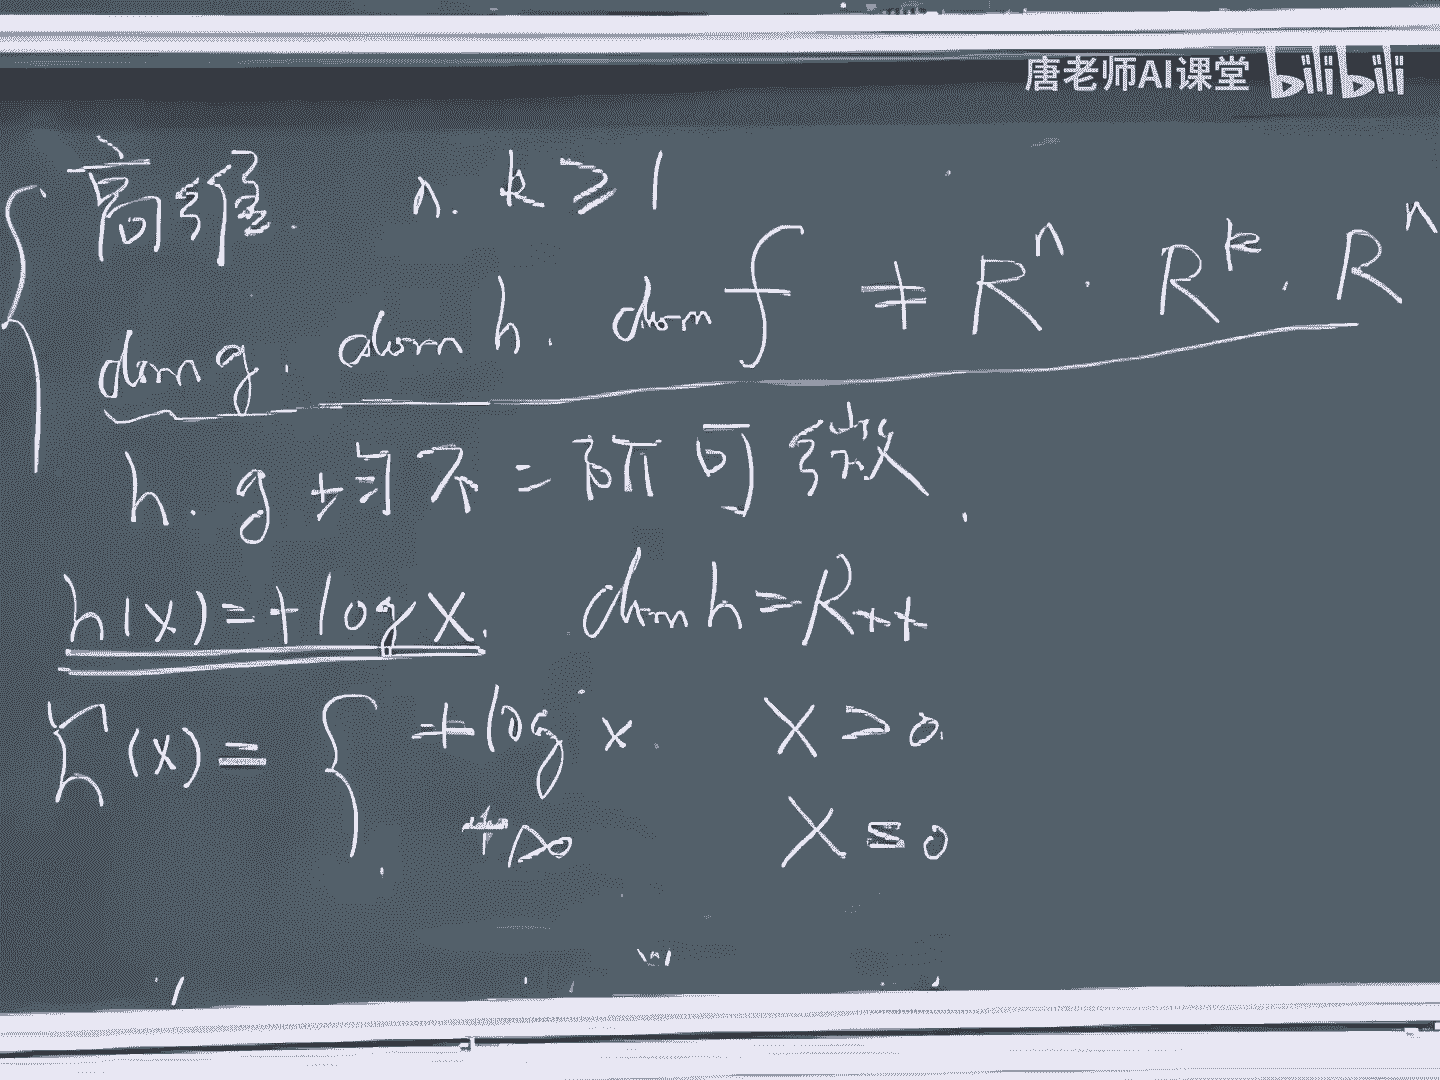 唐老师AI课堂 bilibili
高维. n. k ≥ 1
dom g. dom h. dom f ≠ Rⁿ. Rᵏ. Rⁿ
h. g 均不二阶可微.
h(x) = + log x. dom h = R₊₊
h̃(x) = { + log x. x > 0.
+∞ x ≤ 0